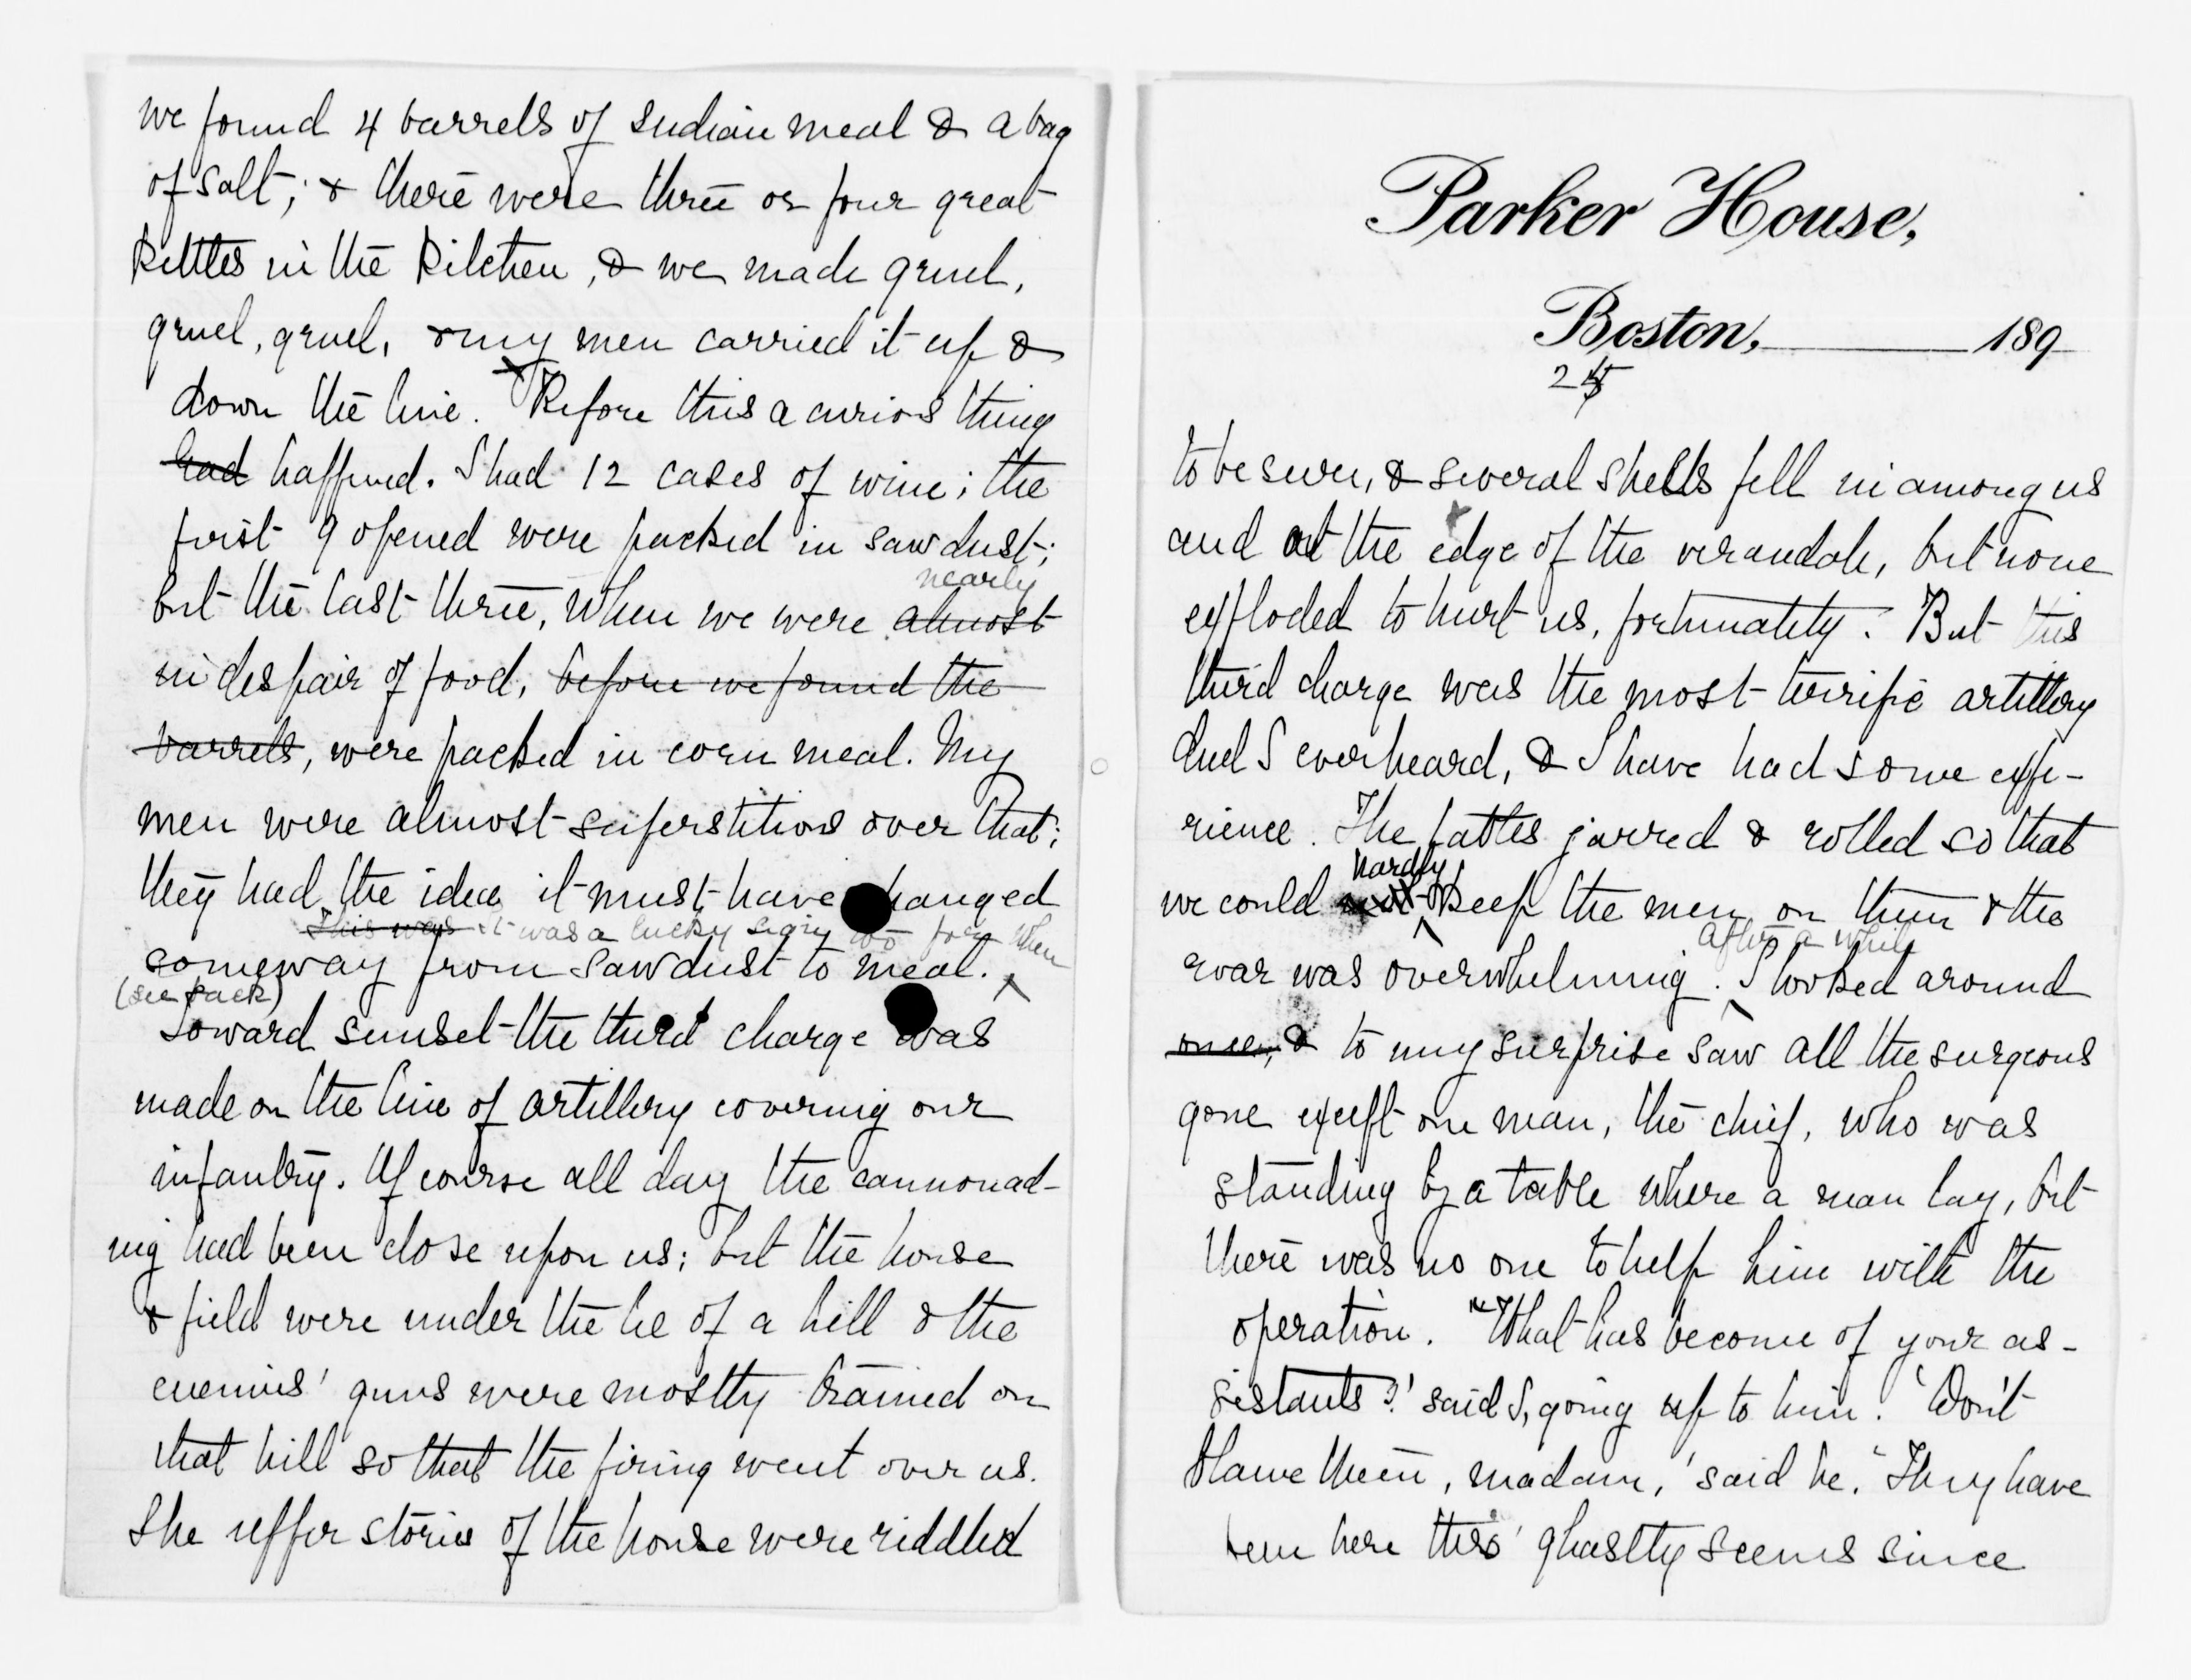 we found 4 barrels of Indian meal & a bag
of salt; & there were three or four great
kettles in the kitchen, & we made gruel,
gruel, gruel, & my men carried it up &
down the line. Before this a curious thing
had happened. I had 12 cases of wine; the
first 9 opened were packed in sawdust;
nearly
but the last three, when we were almost
in despair of food, before we found the
barrels, were packed in corn meal. My
men were almost superstitious over that;
they had the idea it must have changed
This was it was a lucky sign too for when
someway from sawdust to meal.
(see back)
Toward sunset the third charge was
made on the line of artillery covering our
infantry. Of course all day the cannonad-
ing had been close upon us; but the house
& field were under the lie of a hill & the
enemies' guns were mostly trained on
that hill so that the firing went over us.
The upper stories of the house were riddled
Parker House,
Boston, 189
25
to be sure, & several shells fell in among us
and at the edge of the verandah, but none
exploded to hurt us, fortunately. But this
third charge was the most terrific artillery
duel I ever heard, & I have had some expe-
rience. The tables jarred & rolled so that
hardly
we could not keep the men on them & the
after a while
roar was overwhelming. I looked around
once, & to my surprise saw all the surgeons
gone except one man, the chief, who was
standing by a table where a man lay, but
there was no one to help him with the
operation. "What has become of your as-
sistants?' said I, going up to him. 'Don't
blame them, madam,' said he. "They have
been here this ghastly seems since